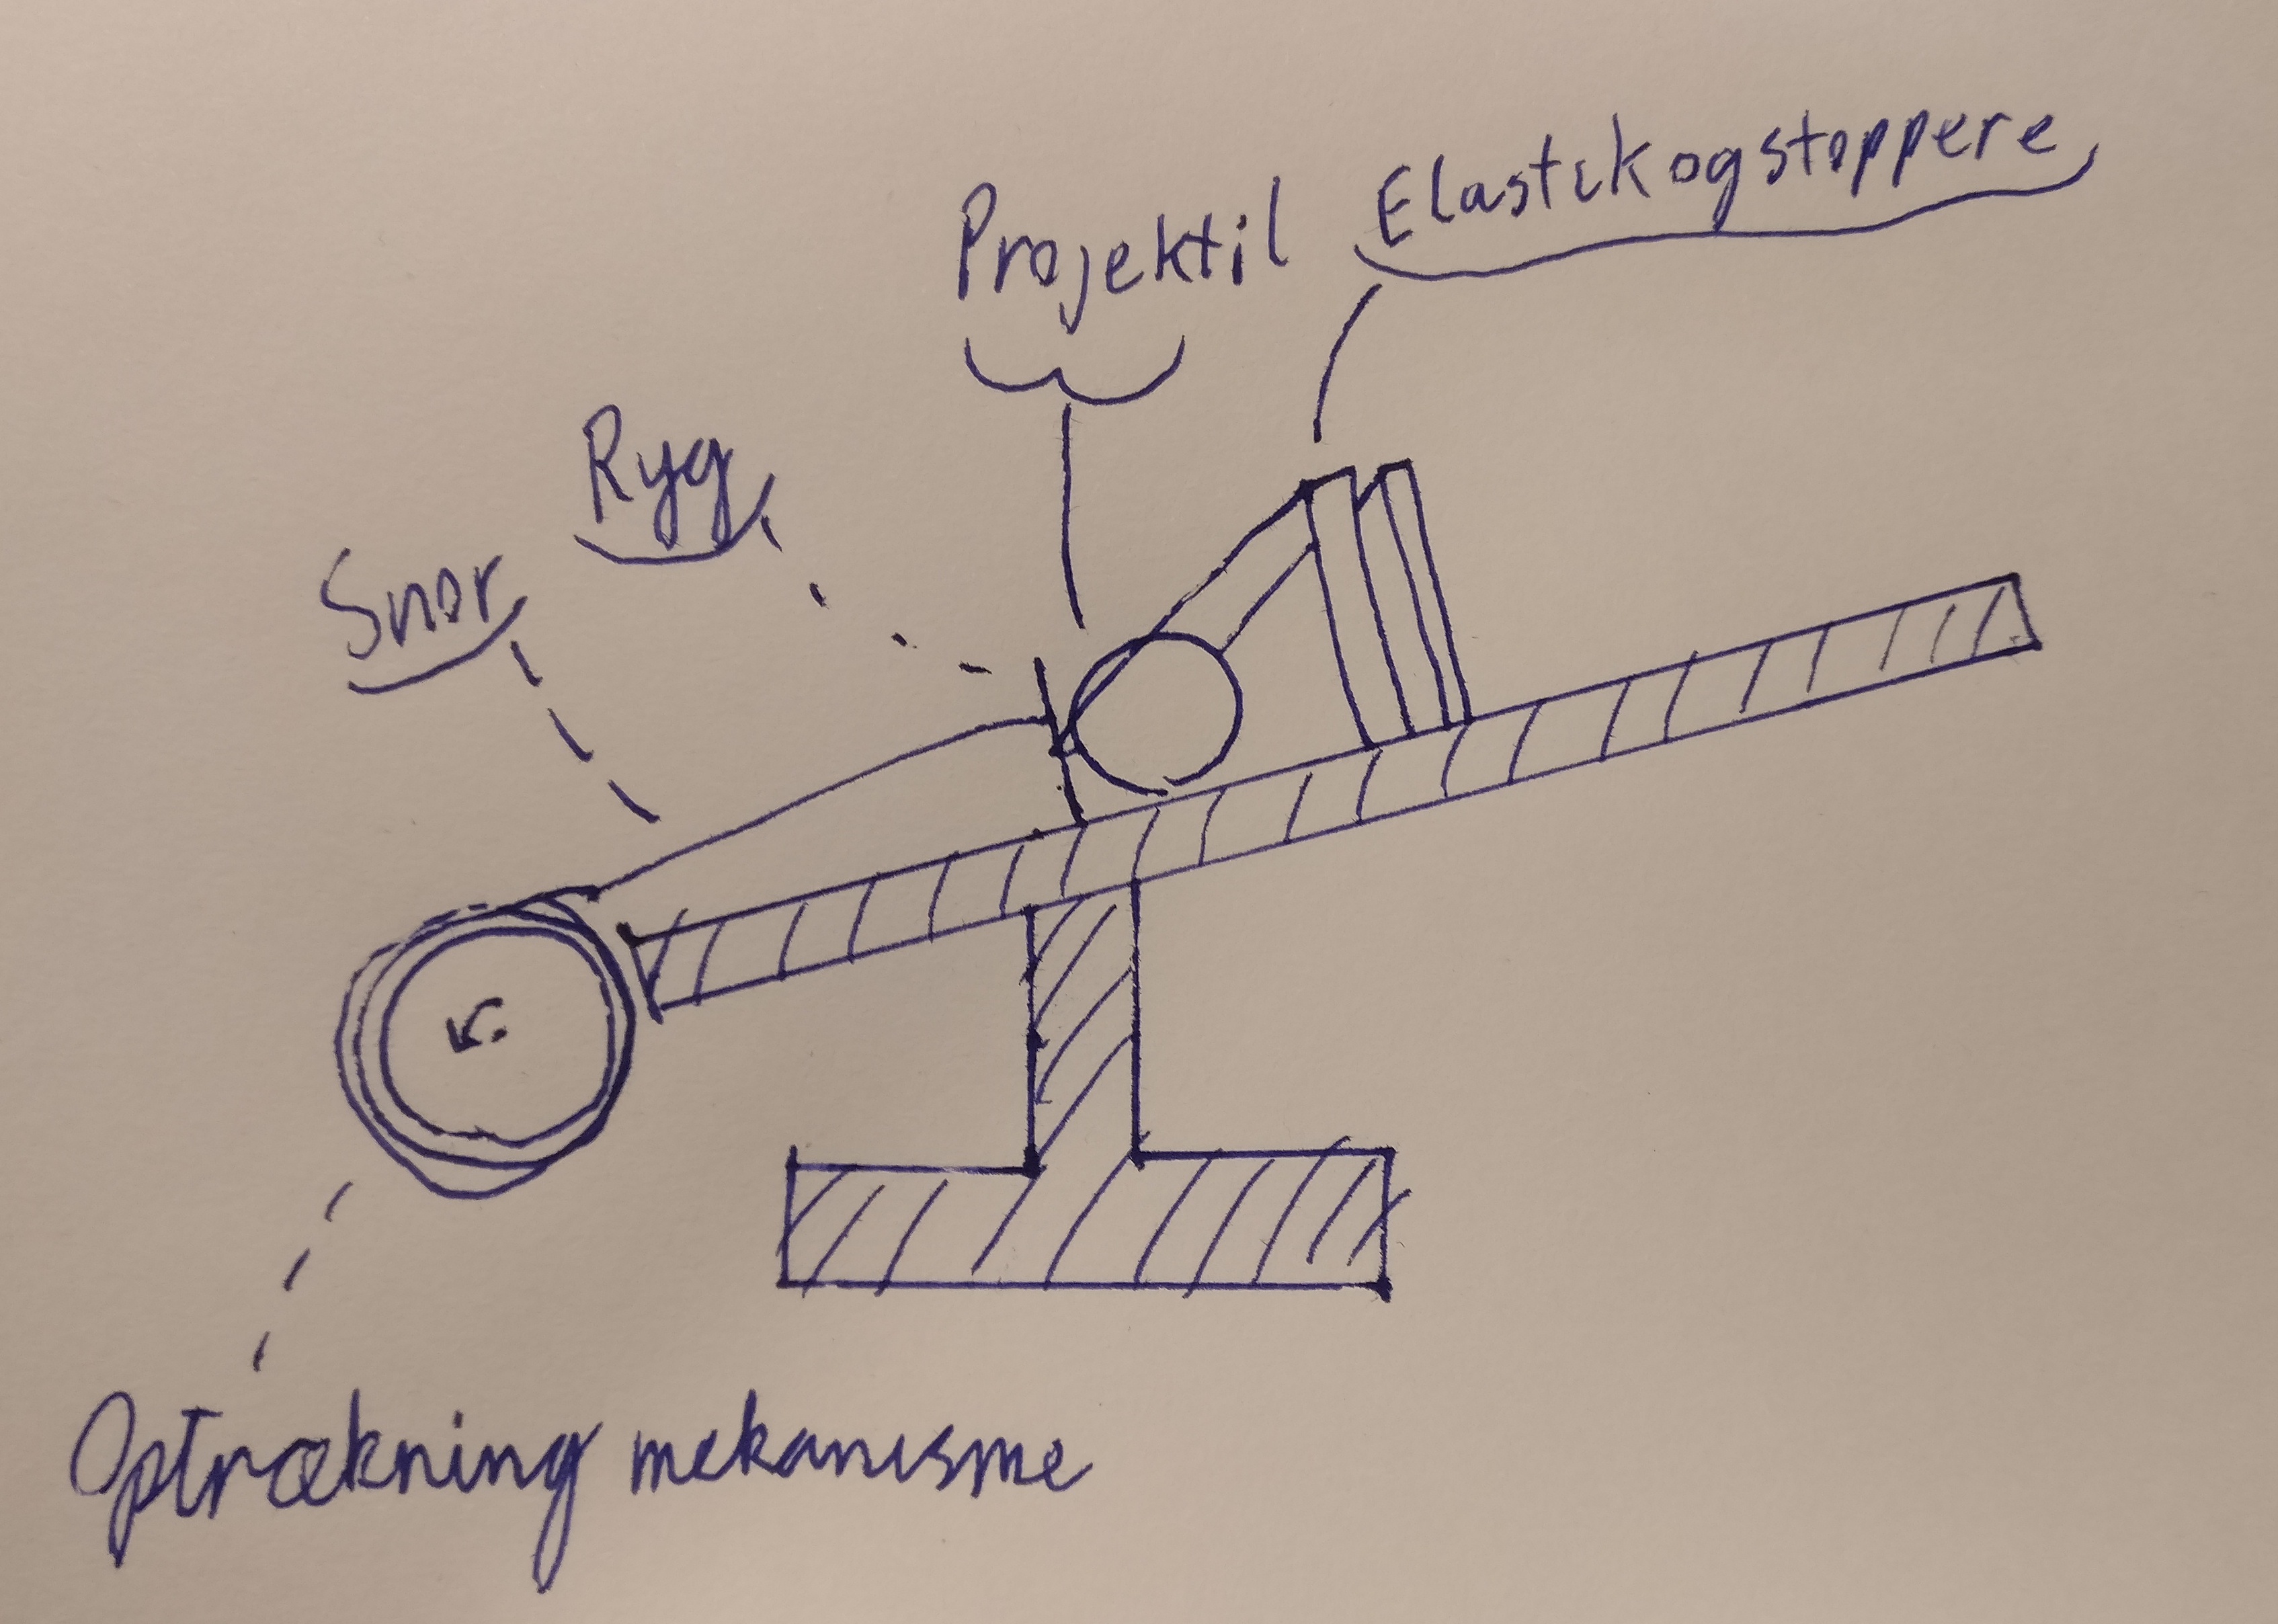 Elastikogstoppere
Projektil
Ryg
Snor
Optrækning mekanisme